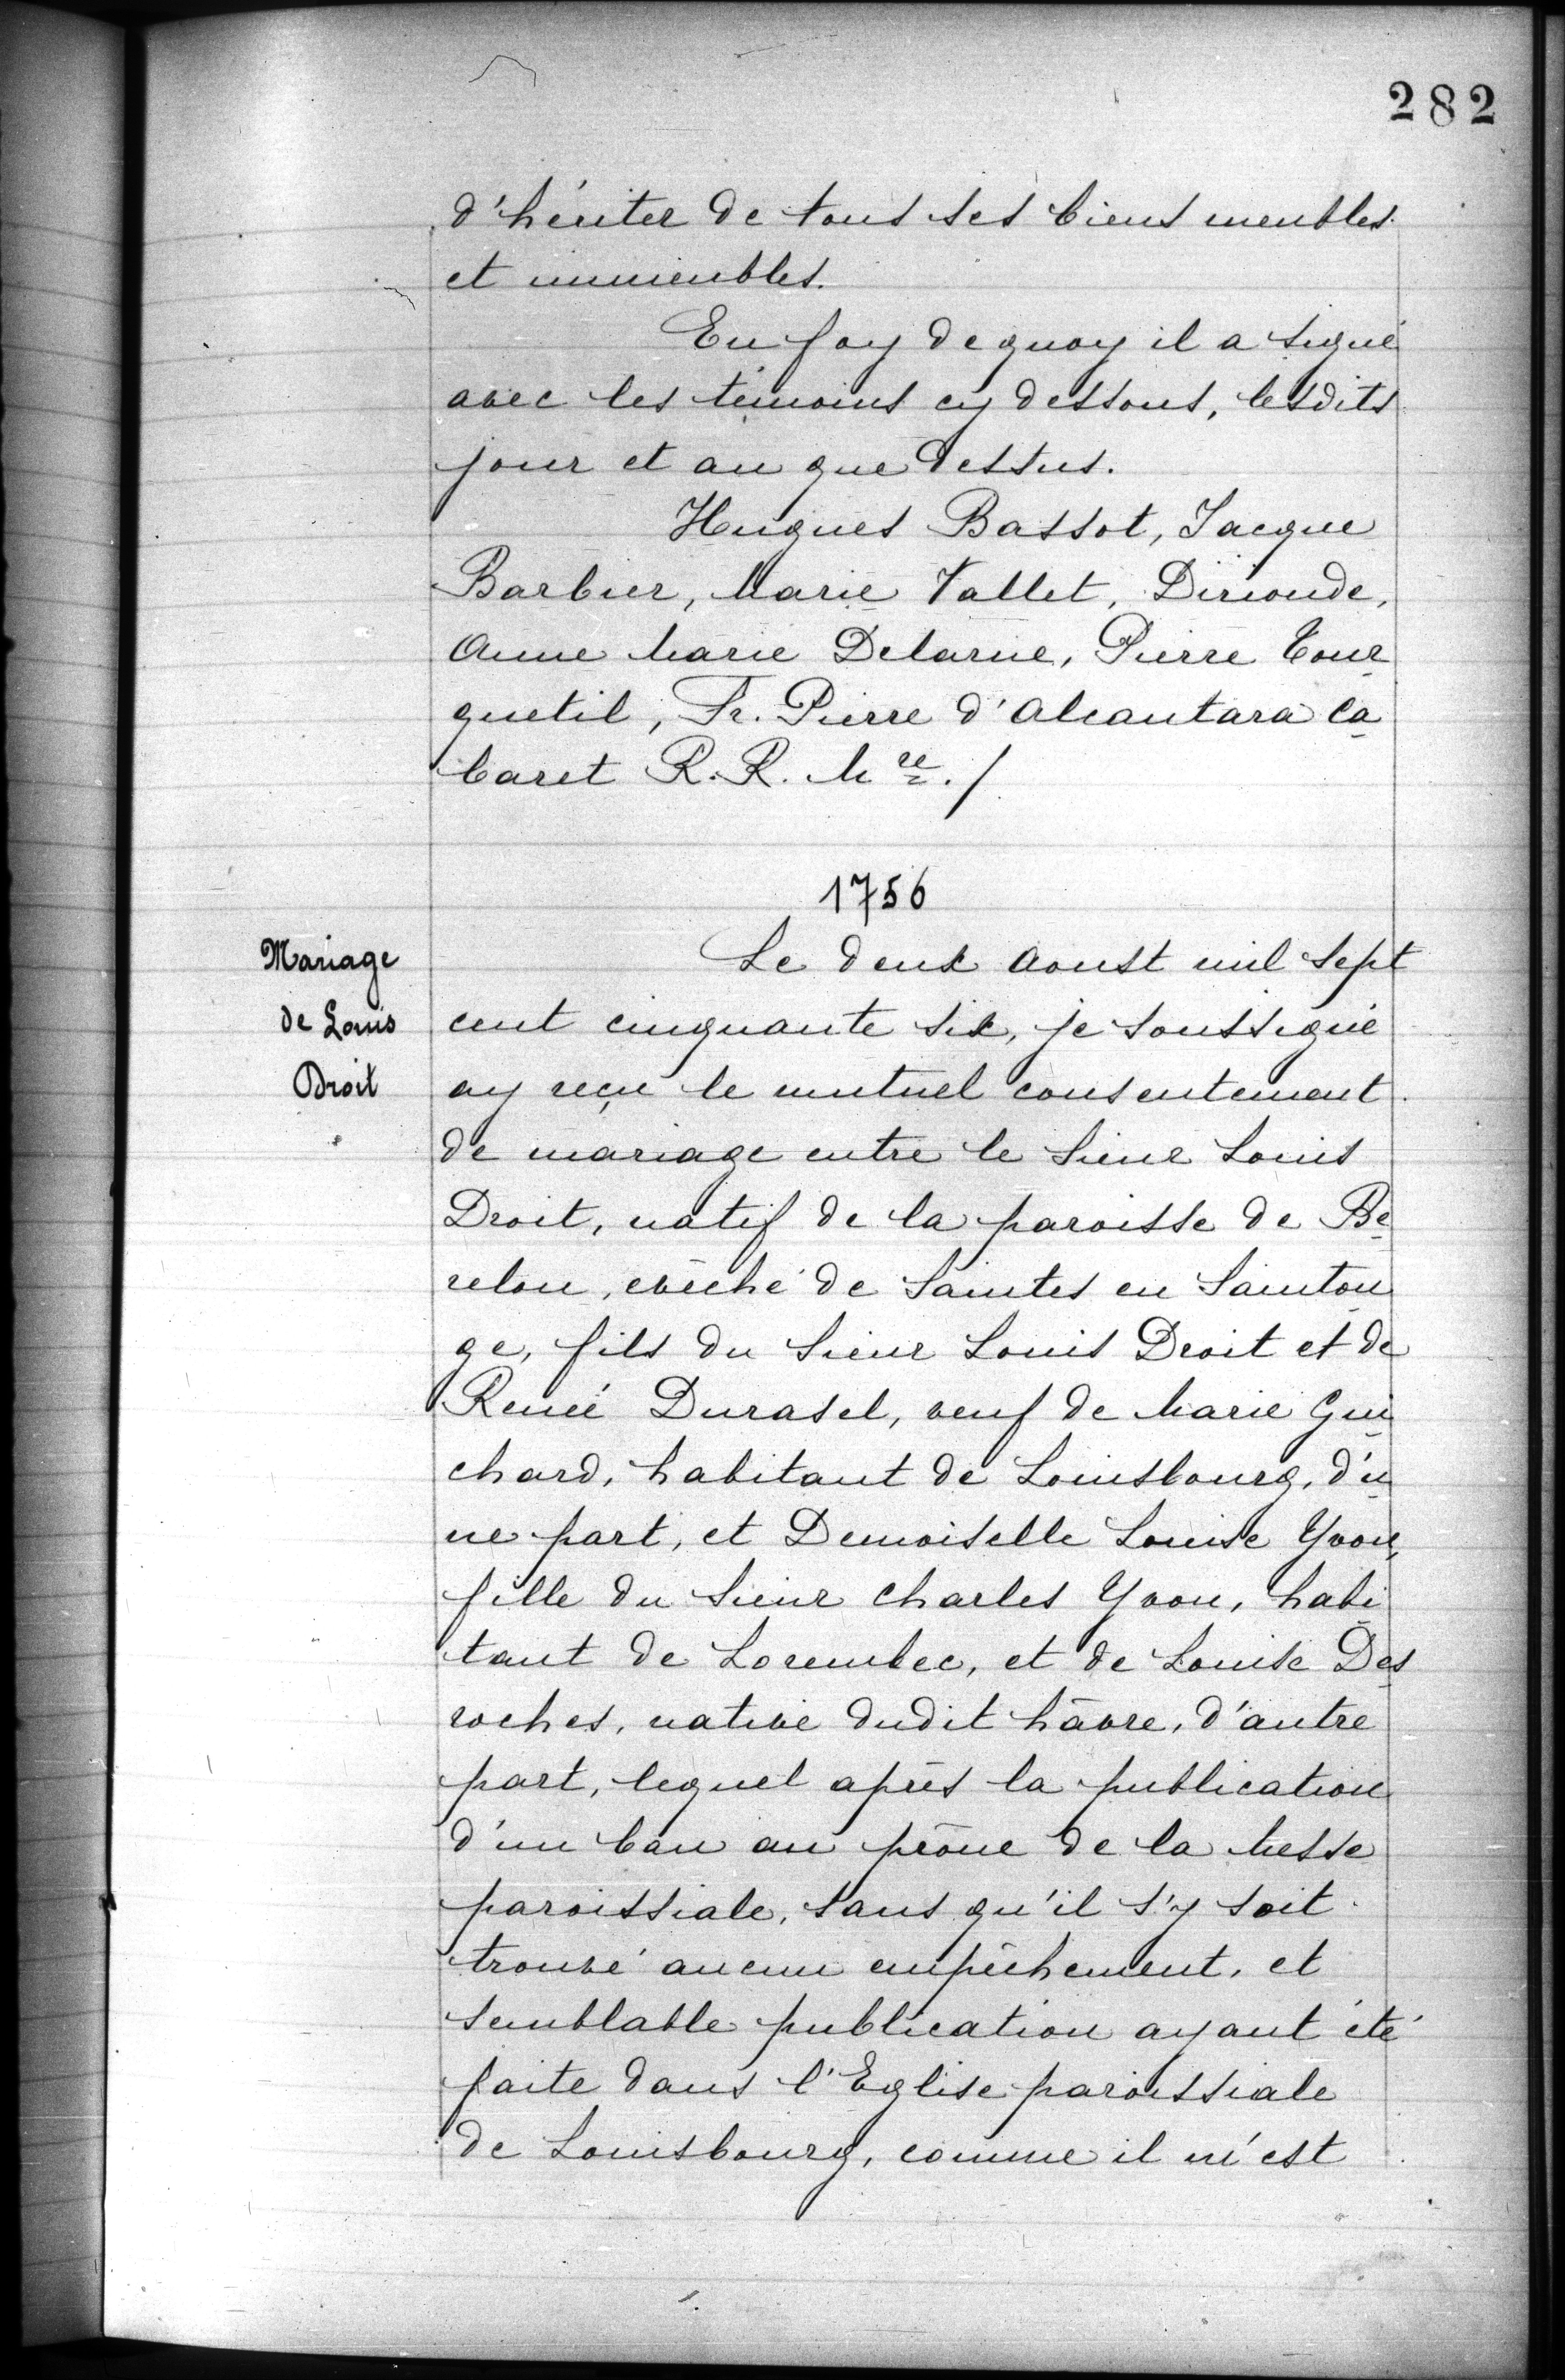 282
d'hériter de tous ses biens meubles
et immeubles.
En foy de quoy il a signé
avec les témoins cy dessous, lesdits
jour et an que dessus.
Hugues Bassot, Jacque
Barbier, Marie Vallet, Dirionde,
Anne Marie Delarue, Pierre Tour
quetil, Fr. Pierre d'Alcantara Ca
baret R. R. M re. /
1756
Mariage
de Louis
Droit
Le deux Aoust mil sept
cent cinquante six, je soussigné
ay reçu le mutuel consentement
de mariage entre le Sieur Louis
Droit, natif de la paroisse de Be
relou, evêché de Saintes en Sainton
ge, fils du Sieur Louis Droit et de
Renée Durasel, veuf de Marie Gui
chard, habitant de Louisbourg, d'u
ne part, et Demoiselle Louise Yvon,
fille du Sieur Charles Yvon, habi
tant de Lorembec, et de Louise Des
roches, native dudit hâvre, d'autre
part, lequel après la publication
d'un ban au prône de la Messe
paroissiale, sans qu'il s'y soit
trouvé aucun empêchement, et
semblable publication ayant été
faite dans l'Eglise paroissiale
de Louisbourg, comme il m'est